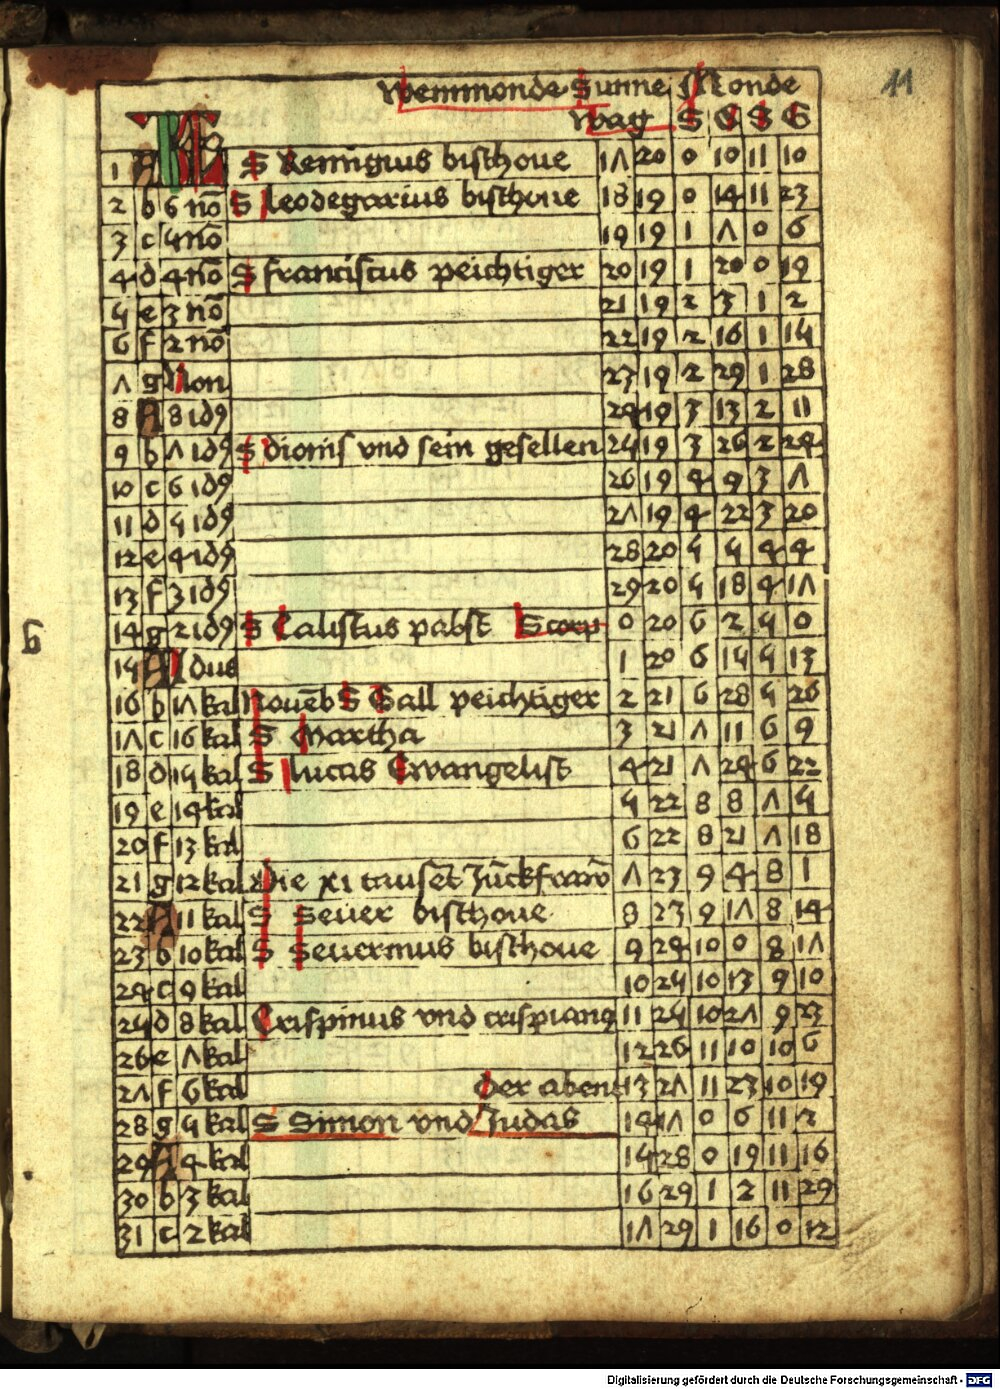 11
Wemmonde Sunne Monde
Wag S G S G
1 A KL S Remigius bischoue 17 20 0 10 11 10
2 b 6 nō S leodegarius bischoue 18 19 0 14 11 23
3 c 5 nō 19 19 1 7 0 6
4 d 4 nō S franciscus peichtiger 20 19 1 20 0 19
5 e 3 nō 21 19 2 3 1 2
6 f 2 nō 22 19 2 16 1 15
7 g Non 23 19 2 29 1 28
8 A 8 id9 24 19 3 13 2 11
9 b 7 id9 S dionis vnd sein gesellen 25 19 3 26 2 24
10 c 6 id9 26 19 4 9 3 7
11 d 5 id9 27 19 4 22 3 20
12 e 4 id9 28 20 5 5 4 4
13 f 3 id9 29 20 5 18 4 17
14 g 2 id9 S Calistus pabst Scorp 0 20 6 2 5 0
15 A Idus 1 20 6 15 5 13
16 b 17 kal Nouēb S Gall peichtiger 2 21 6 28 5 26
17 c 16 kal S Martha 3 21 7 11 6 9
18 d 15 kal S lucas Ewangelist 4 21 7 24 6 22
19 e 14 kal 5 22 8 8 7 5
20 f 13 kal 6 22 8 21 7 18
21 g 12 kal Die xi tausēt Jūckfraw 7 23 9 4 8 1
22 A 11 kal S Seuer bischoue 8 23 9 17 8 14
23 b 10 kal S Seuermus bischoue 9 24 10 0 8 17
24 c 9 kal 10 25 10 13 9 10
25 d 8 kal Crispinus vnd crispian9 11 25 10 27 9 23
26 e 7 kal 12 26 11 10 10 6
27 f 6 kal Der abent 13 27 11 23 10 19
28 g 5 kal S Simon vnd Judas 14 17 0 6 11 2
29 A 4 kal 15 28 0 19 11 16
30 b 3 kal 16 29 1 2 11 29
31 c 2 kal 17 29 1 16 0 12
Digitalisierung gefördert durch die Deutsche Forschungsgemeinschaft - DFG